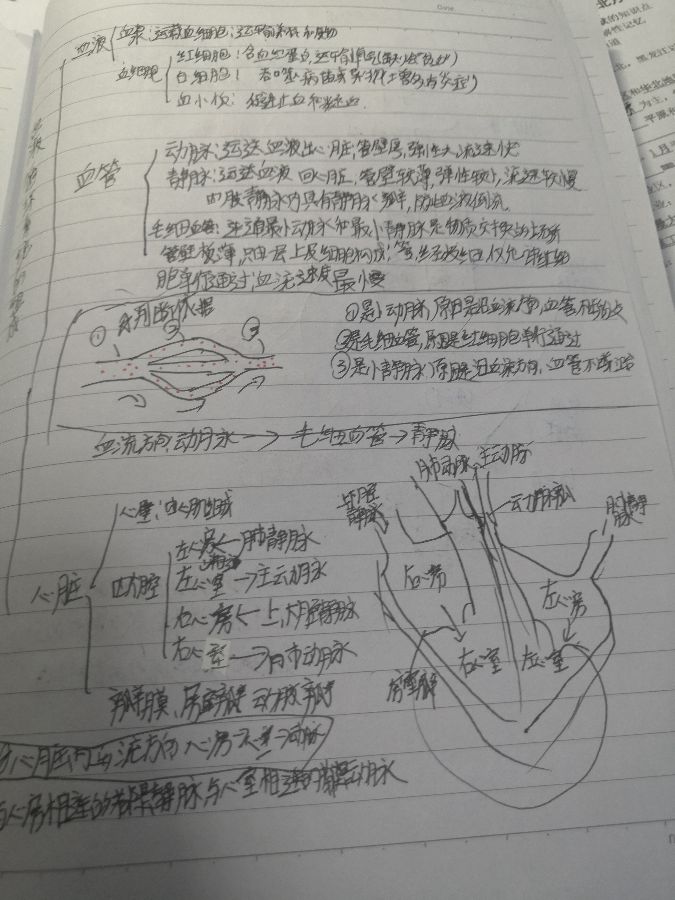 血液
血浆：运载血细胞，运输养料和废物
血细胞
红细胞：含血红蛋白，运输氧气
白细胞：吞噬病菌
血小板：促进止血和凝血
血管
动脉：运送血液出心脏，管壁厚，弹性大，流速快
静脉：运送血液回心脏，管壁较薄，弹性较小，流速较慢
四肢静脉内具有静脉瓣，防止血液倒流
毛细血管：连通最小动脉和最小静脉是物质交换的场所
管壁极薄，只由一层上皮细胞构成，管 仅允许红细
胞单行通过，血流速度最慢
判断依据
① ② ③
①是小动脉，原因是沿血流方向，血管
②是毛细血管，原因是红细胞单行通过
③是小静脉，原因是沿血流方向，血管不断
血流方向，动脉→毛细血管→静脉
心脏
心壁：由心肌组成
四腔
左心房←肺静脉
左心室→主动脉
右心房←上，下腔静脉
右心室→肺动脉
瓣膜、房室瓣 动脉瓣
心脏内血流方向 心房→心室→动脉
与心房相连的都是静脉与心室相连的都是动脉
肺动脉 主动脉
腔静脉
动脉瓣
肺静脉
右心房
左心房
右心室
左心室
房室瓣